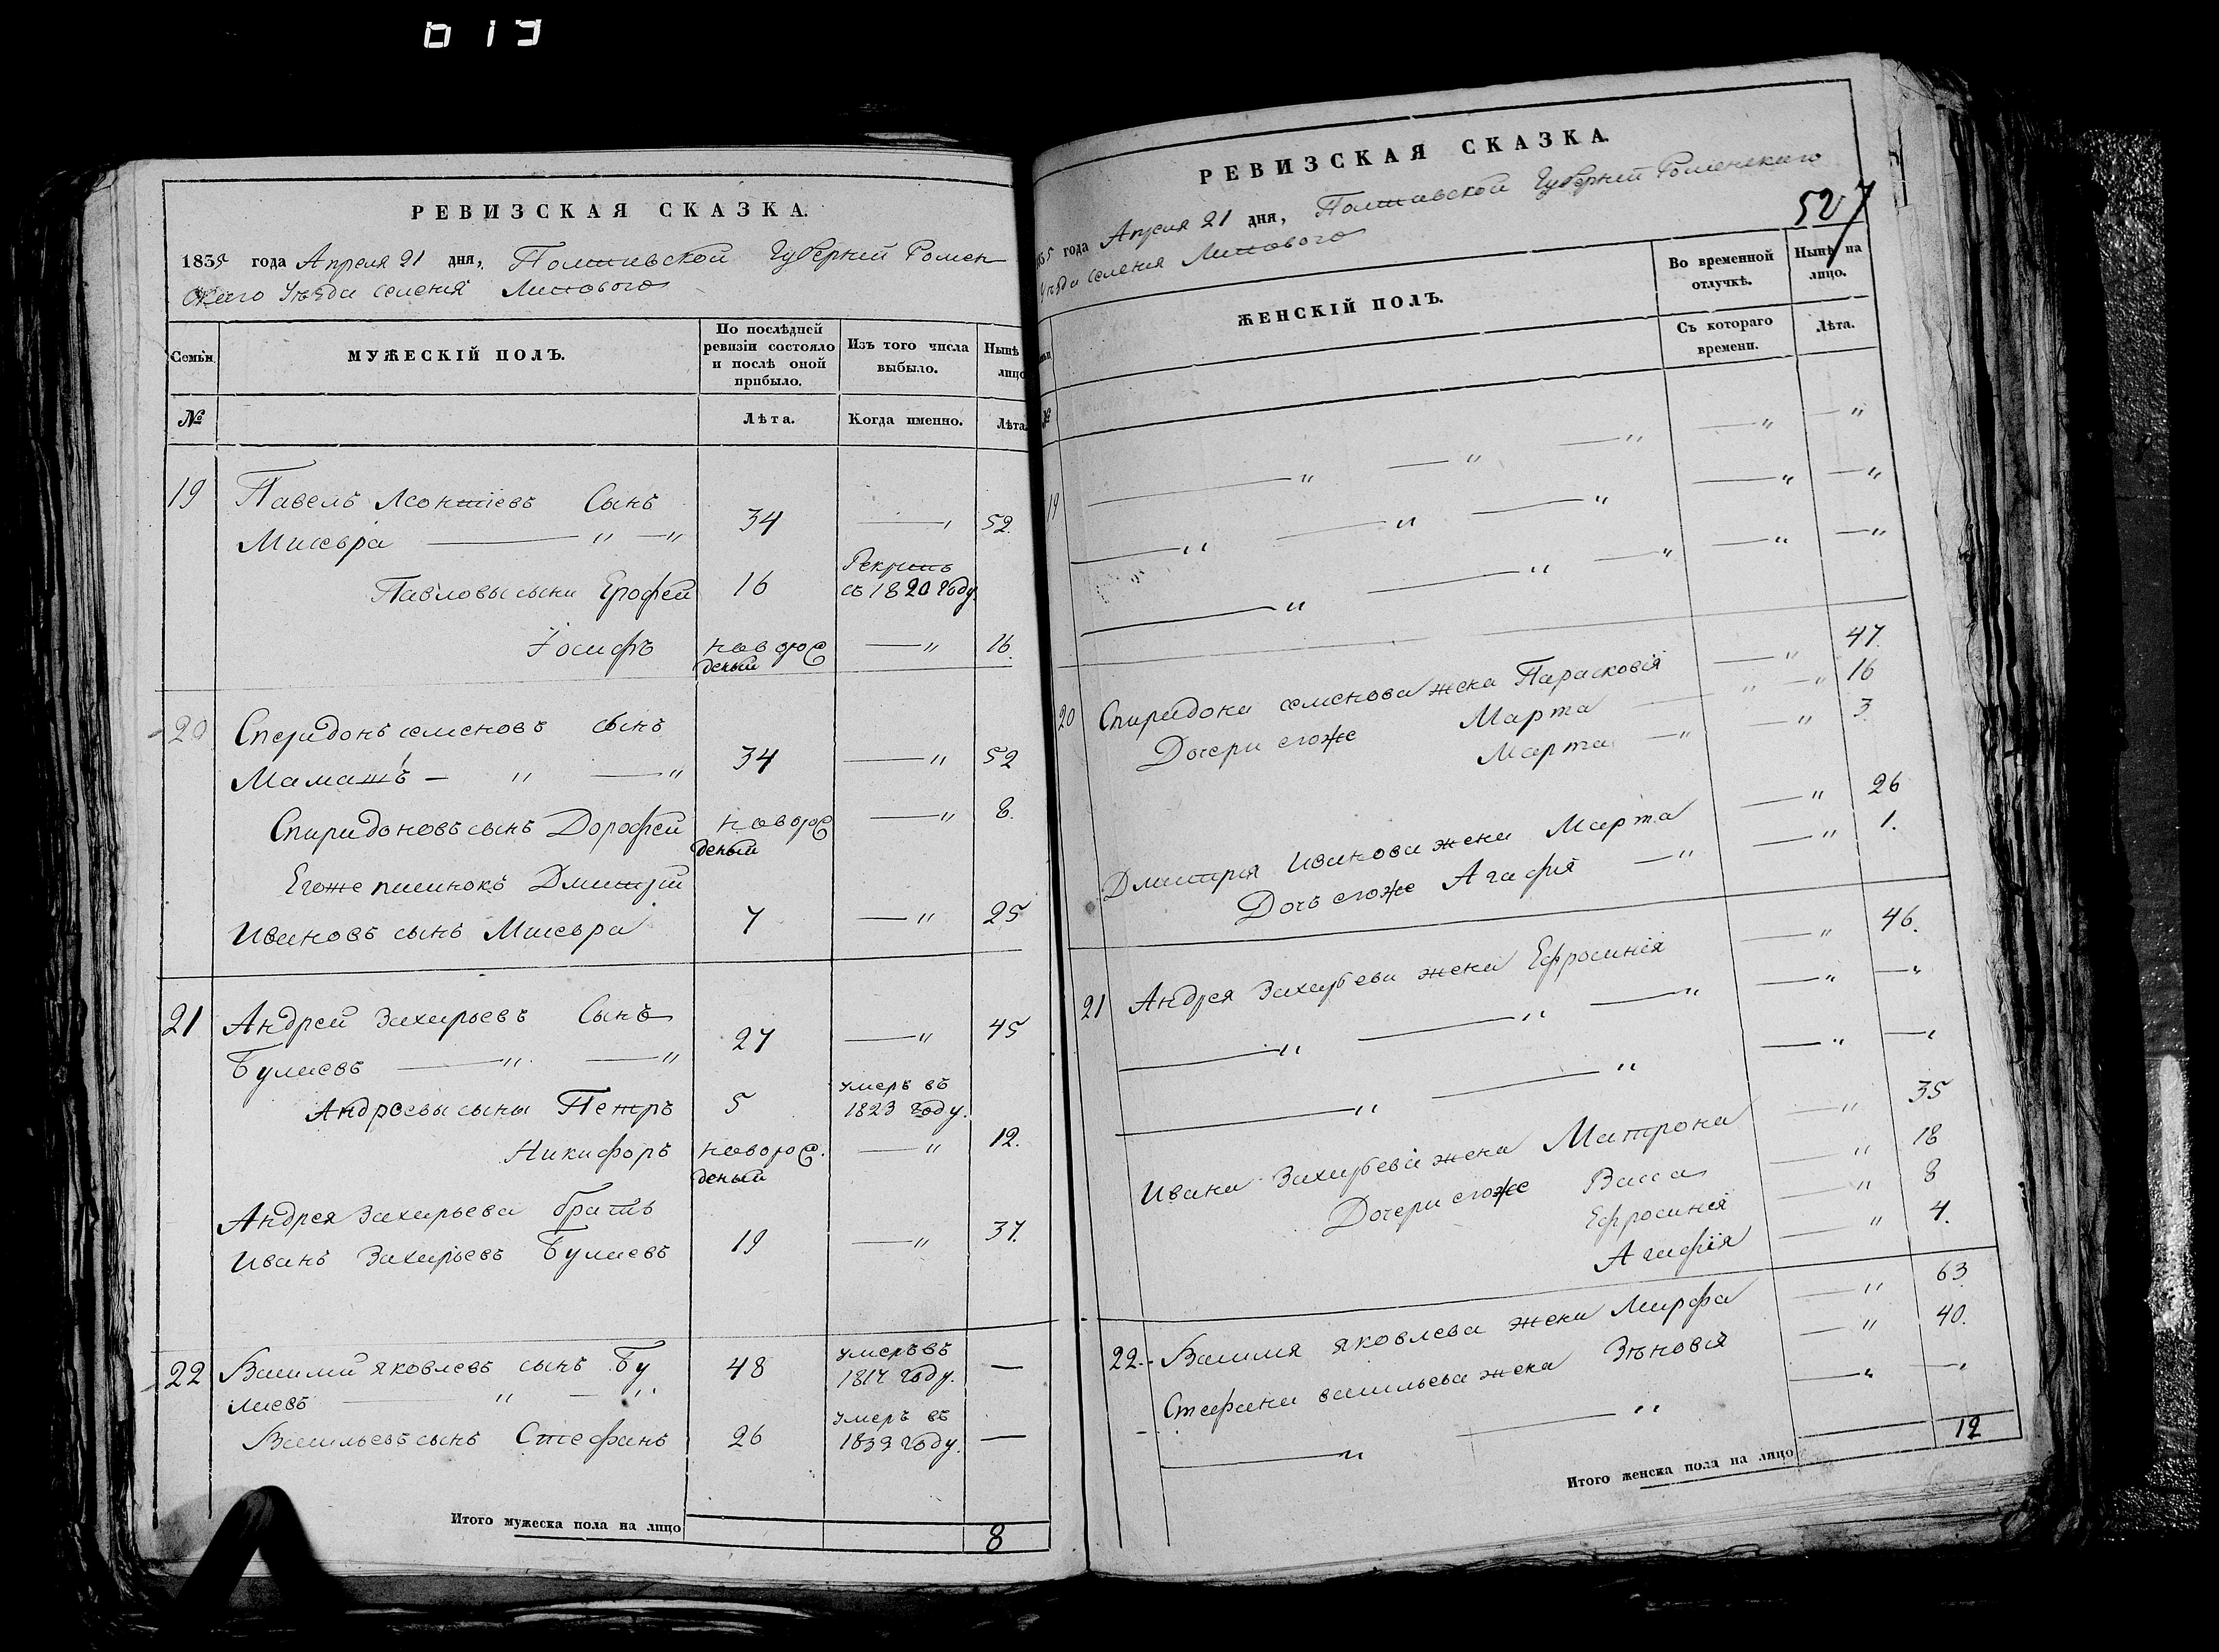 619
РЕВИЗСКАЯ СКАЗКА.
1835 года Апреля 21 дня, Полтавской Губерний Ромен
ского Уезда селения Липового
Семьи
МУЖЕСКІЙ ПОЛЪ.
По послѣдней ревизіи состояло и послѣ оной прибыло.
Изъ того числа выбыло.
Нынѣ лицо
№
Лѣта.
Когда именно.
Лѣта.
19 Павелъ Леонтіевъ Сынъ
Мисюра — " — " 34 — " 52.
Павловы сыни Ерофей 16 Рекрутъ
съ 1820 году.
Іосифъ новорож
деный — " 16.
20 Спиридонъ семеновъ сынъ
Маматъ — " — " 34 — " 52
Спиридоновъ сынъ Дорофей новорож
деный — " 8.
Егоже пасинокъ Дмитрій
Ивановъ сынъ Мисюра 7 — " 25
21 Андрей Захарьевъ Сынъ
Булаевъ — " — " 27 — " 45
Андреевы сыны Петръ 5 умеръ въ
1823 году.
Никифоръ новорож.
деный — " 12.
Андрея Захарьева братъ
Иванъ Захарьевъ Булаевъ 19 — " 37.
22 Василий Яковлевъ сынъ Бу
лаевъ — " — " 48 умеръ въ
1817 году. —
Васильевъ сынъ Стефанъ 26 умеръ въ
1832 году. —
Итого мужеска пола на лицо 8
РЕВИЗСКАЯ СКАЗКА.
527
35 года Апреля 21 дня, Полтавской Губерний Роменскаго
Уезда селения Липового
ЖЕНСКІЙ ПОЛЪ.
Во временной отлучкѣ.
Нынѣ на лицо.
№
Съ котораго времени.
Лѣта.
19 — " — " — " — " — "
— " — " — " — " — "
— " — " — " — " — "
20 Спиридона семенова жена Парасковія — " 47.
Дочери егоже Марта — " — " 16
Марта — " — " 3.
Дмитрія Иванова жена Марта — " 26
Дочъ егоже Агафія — " — " 1.
21 Андрея Захарьева жена Ефросинія — " 46.
— " — " — " — " — "
— " — " — " — "
Ивана Захарьева жена Матрона — " 35
Дочери егоже Васса — " 18
Ефросинія — " 8
Агафія — " 4.
22 Василия Яковлева жена Марфа — " 63.
Стефана васильева жена Зѣновія — " 40.
— " — " — " — "
Итого женска пола на лицо 12